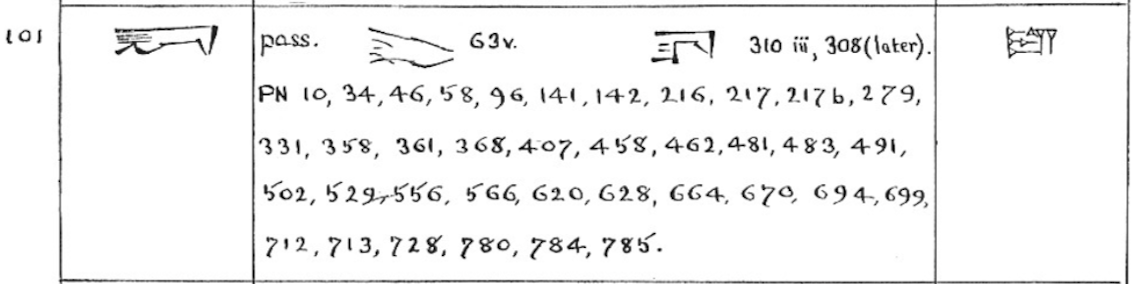 101 pass. 63v. 310 iii, 308(later).
PN 10, 34, 46, 58, 96, 141, 142, 216, 217, 217b, 279,
331, 358, 361, 368, 407, 458, 462, 481, 483, 491,
502, 529, 556, 566, 620, 628, 664, 670, 694, 699,
712, 713, 728, 780, 784, 785.